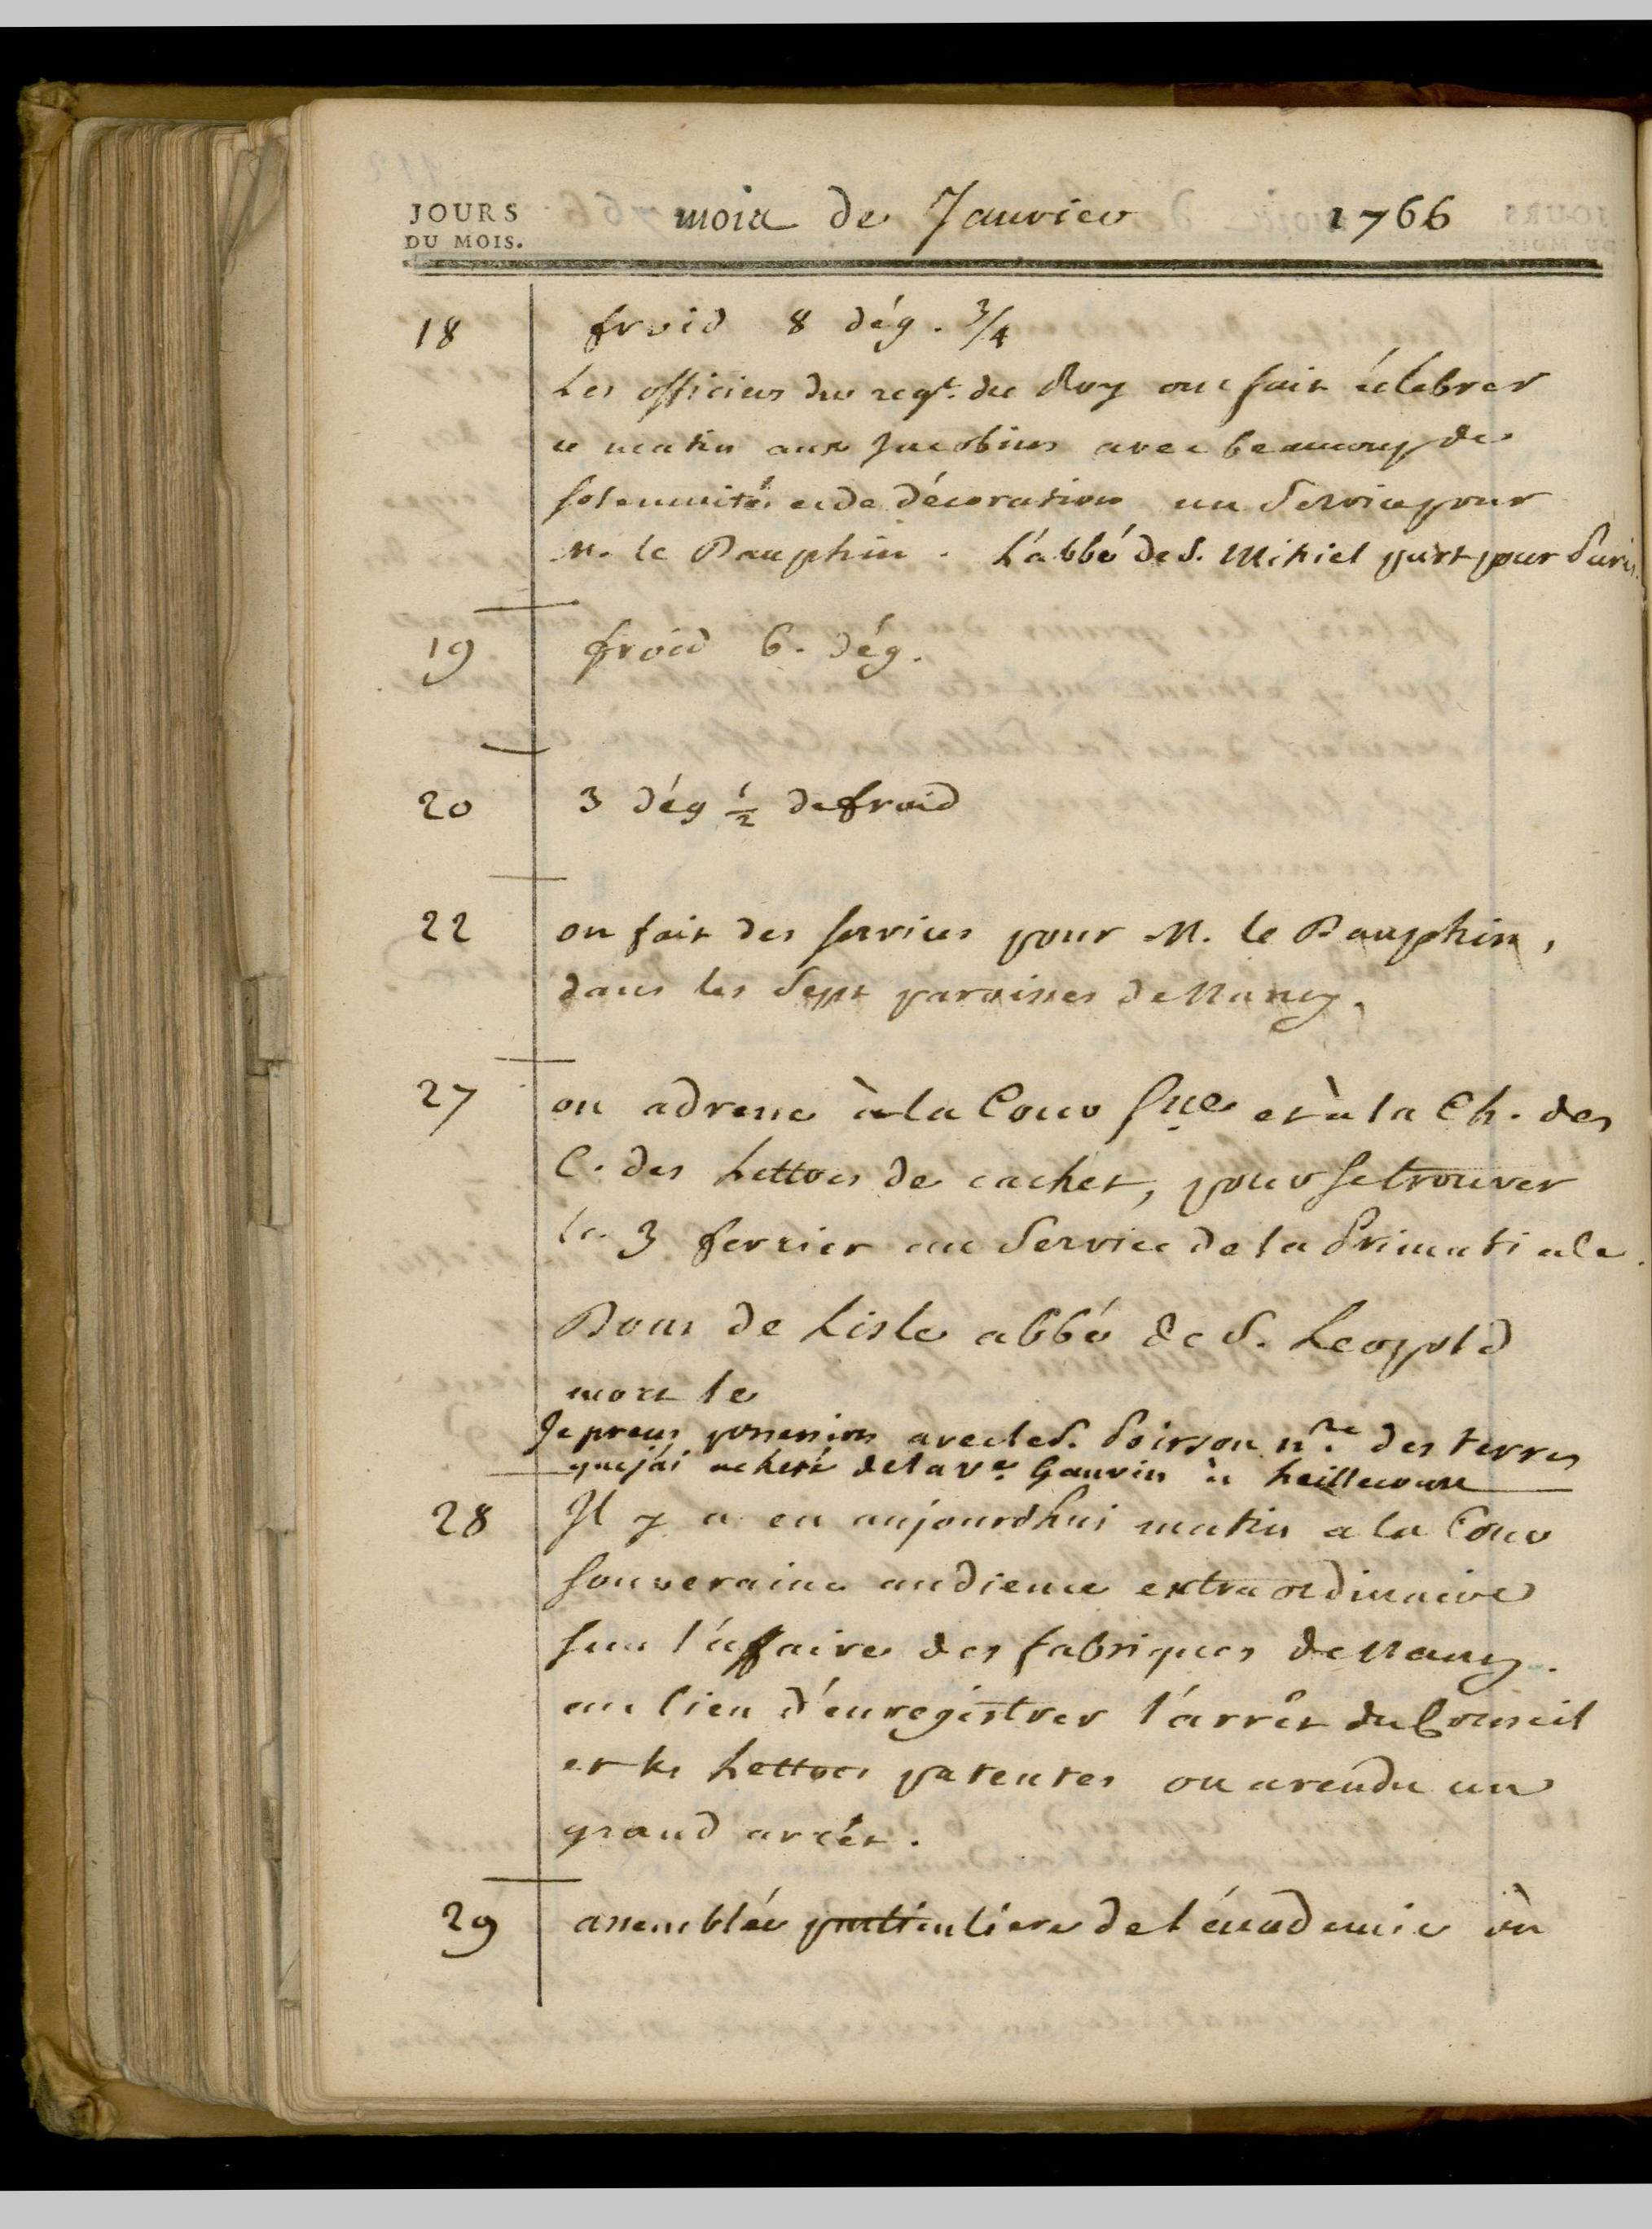 JOURS
DU MOIS.
mois de Janvier 1766
18 froid 8 dég. 3/4
Les officiers du regt. du Roy ont fait célebrer
ce matin aux Jacobins avec beaucoup de
solemnité et de décoration un Service pour
M. le Dauphin. L'abbé de S. Mihiel part pour Paris.
19 froid 6. dég.
20 3 dég 1/2 de froid
22 on fait des services pour M. le Dauphin,
dans les Sept paroisses de Nancy.
27 on adresse à la Cour Sne et à la Ch. des
C. des Lettres de cachet, pour se trouver
le 3 fevrier au Service de la Primatiale.
Dom de Lisle abbé de S. Leopold
mort le
Je prens possession avec le S. Poirson nre des terres
que j'ai acheté de la ve Gauvin à heillecourt
28 Il y a eu aujourd'hui matin a la Cour
souveraine audience extraordinaire
sur l'affaire des fabriques de Nancy.
au lieu d'enregistrer l'arrêt du Conseil
et les Lettres patentes on a rendu un
grand arrét.
29 assemblée particuliere de l'académie où